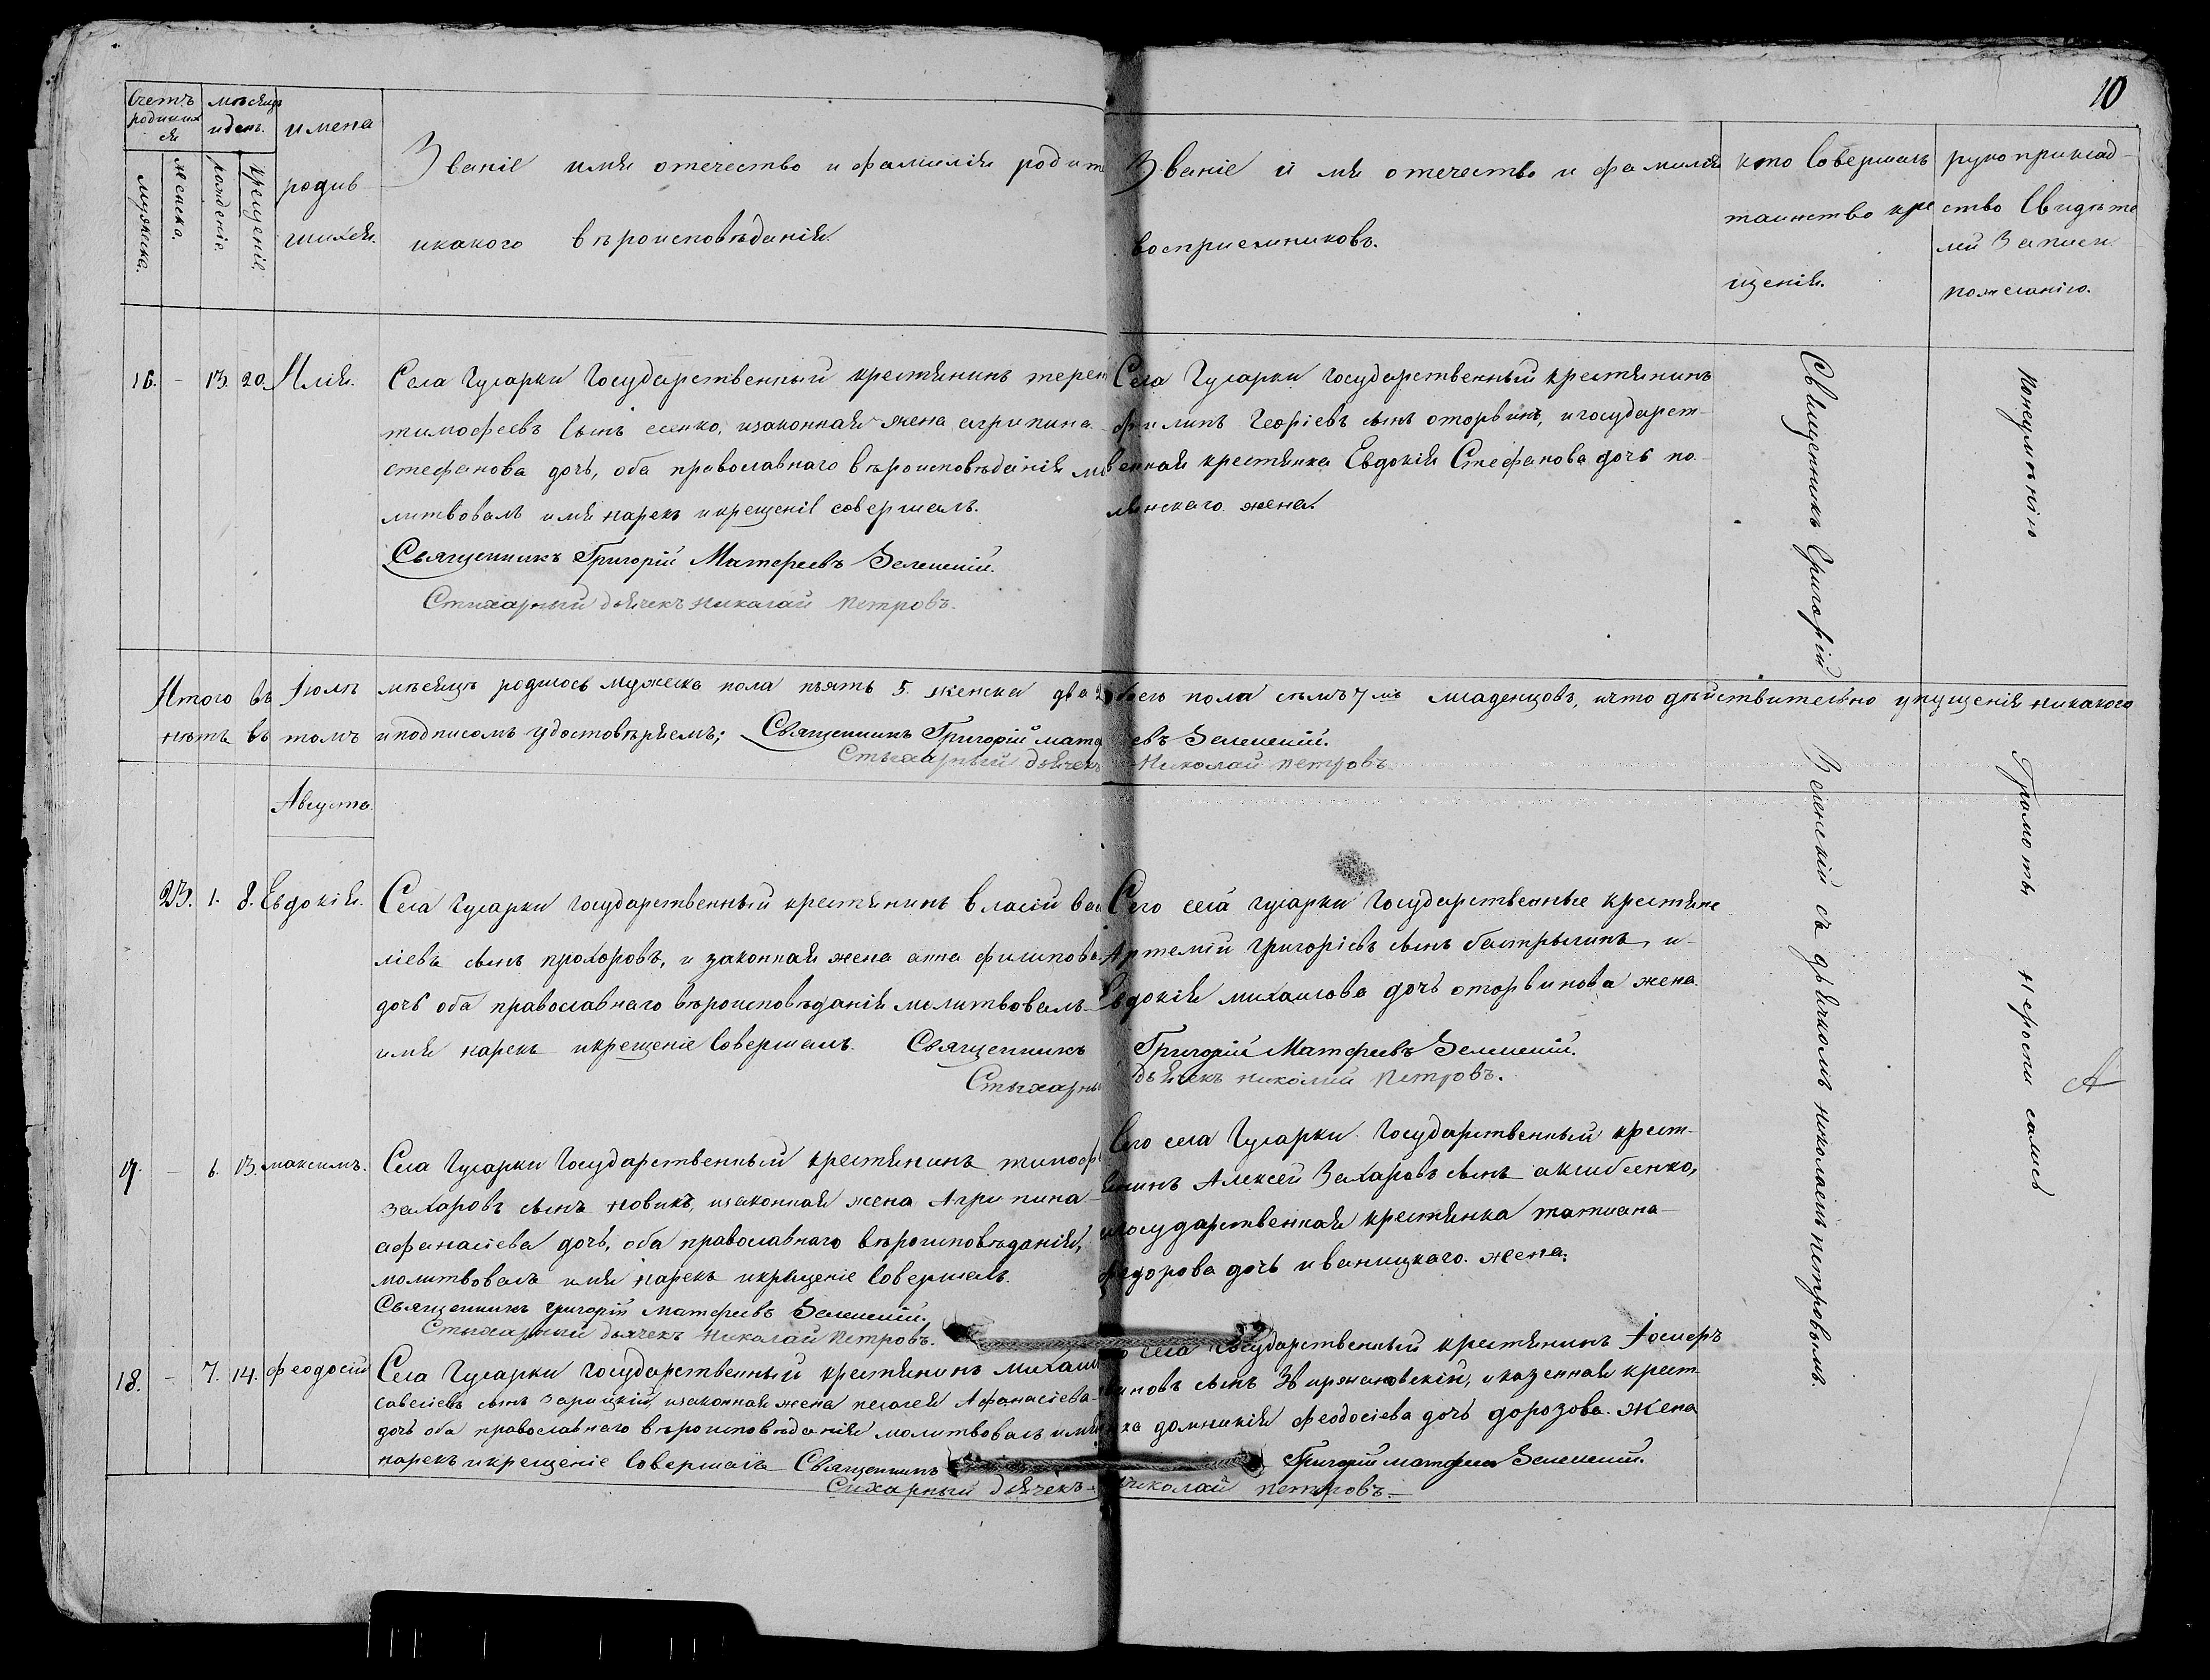 10
Счетъ родивихся
мѣсяцъ идень.
имена родив-шихся.
мужеска.
женска.
рожденіе.
крещеніе.
Званіе имя отечество и фамилія родит
икакого вѣроисповѣданія.
Званіе и мя отечество и фамилія
воспріемниковъ.
кто Совершалъ
таинство кре
щенія.
рукоприклад-
ство Свидѣте
лей Записи
пожеланію.
16. - 13. 20. Илія.
Села Гусарки Государственный крестянинъ терен
тимофеевъ сынъ сенко, изаконная жена агрипина
стефанова дочь, оба православнаго вѣроисповѣданія мо
литвовалъ имя нарекъ икрещеніе совершалъ.
Священникъ Григорій Матфеевъ Зеленскій.
Стихарный дьячекъ Николай Петровъ.
Села Гусарки Государственный крестянинъ
филипъ Георгіевъ сынъ оторвинъ, игосударст-
венная крестянка Евдокія Стефанова дочь по-
лянскаго жена.
Итого въ Іюлѣ мѣсяцѣ родилось мужеска пола пять 5. женска два 2 обоего пола семъ 7мъ младенцовъ, ичто дѣйствительно упущенія никакого
нѣтъ въ томъ иподписомъ удостовѣряемъ; Священникъ Григорій Матфеевъ Зеленскій.
Стыхарный дьячекъ Николай Петровъ
Августа.
23. 1. 8. Евдокія.
Села Гусарки Государственный крестянинъ власій васи
ліевъ сынъ прохоровъ, и законная жена анна филипова
дочь оба православнаго вѣроисповѣданія молитвовалъ
имя нарекъ икрещеніе Совершалъ. Священникъ Григорій Матфеевъ Зеленскій.
Стыхарны дьячекъ николай Петровъ.
Сего села гусарки Государственные крестяне
Артемій григоріевъ сынъ бастрыгинъ, и
Евдокія михаилова дочь оторвинова жена.
17. - 6. 13. максимъ.
Села Гусарки Государственный крестянинъ тимоф
захаровъ сынъ новикъ, изаконная жена Агрипина
афанасіева дочь, оба православнаго вѣроисповѣданія,
молитвовалъ имя нарекъ икрещеніе Совершалъ.
Священникъ григорій Матфеевъ Зеленскій.
Стыхарный дьячекъ николай Петровъ.
Сего села Гусарки Государственный крест-
янинъ Алексей Захаровъ сынъ аксибеенко,
игосударственная крестянка татиана
федорова дочь иваницкаго. жена.
18. - 7. 14. феодосій
Села Гусарки Государственный крестянинъ михаил
савеліевъ сынъ зарицкій, изаконная жена пелагея Афанасіева
дочь оба православнаго вѣроисповѣданія молитвовалъ имя
нарекъ икрещеніе Совершалъ Священникъ Григорій матфеев Зеленскій.
Сихарный дьячекъ Николай петровъ.
села Государственный крестянинъ Іосифъ
иновъ сынъ, иказенная крест-
ка домникія феодосіева дочь дорозова. жена
Священникъ Григорій Зеленскій съ дьячкомъ николаемъ петровымъ.
Понеумѣнію Грамоты неросписались